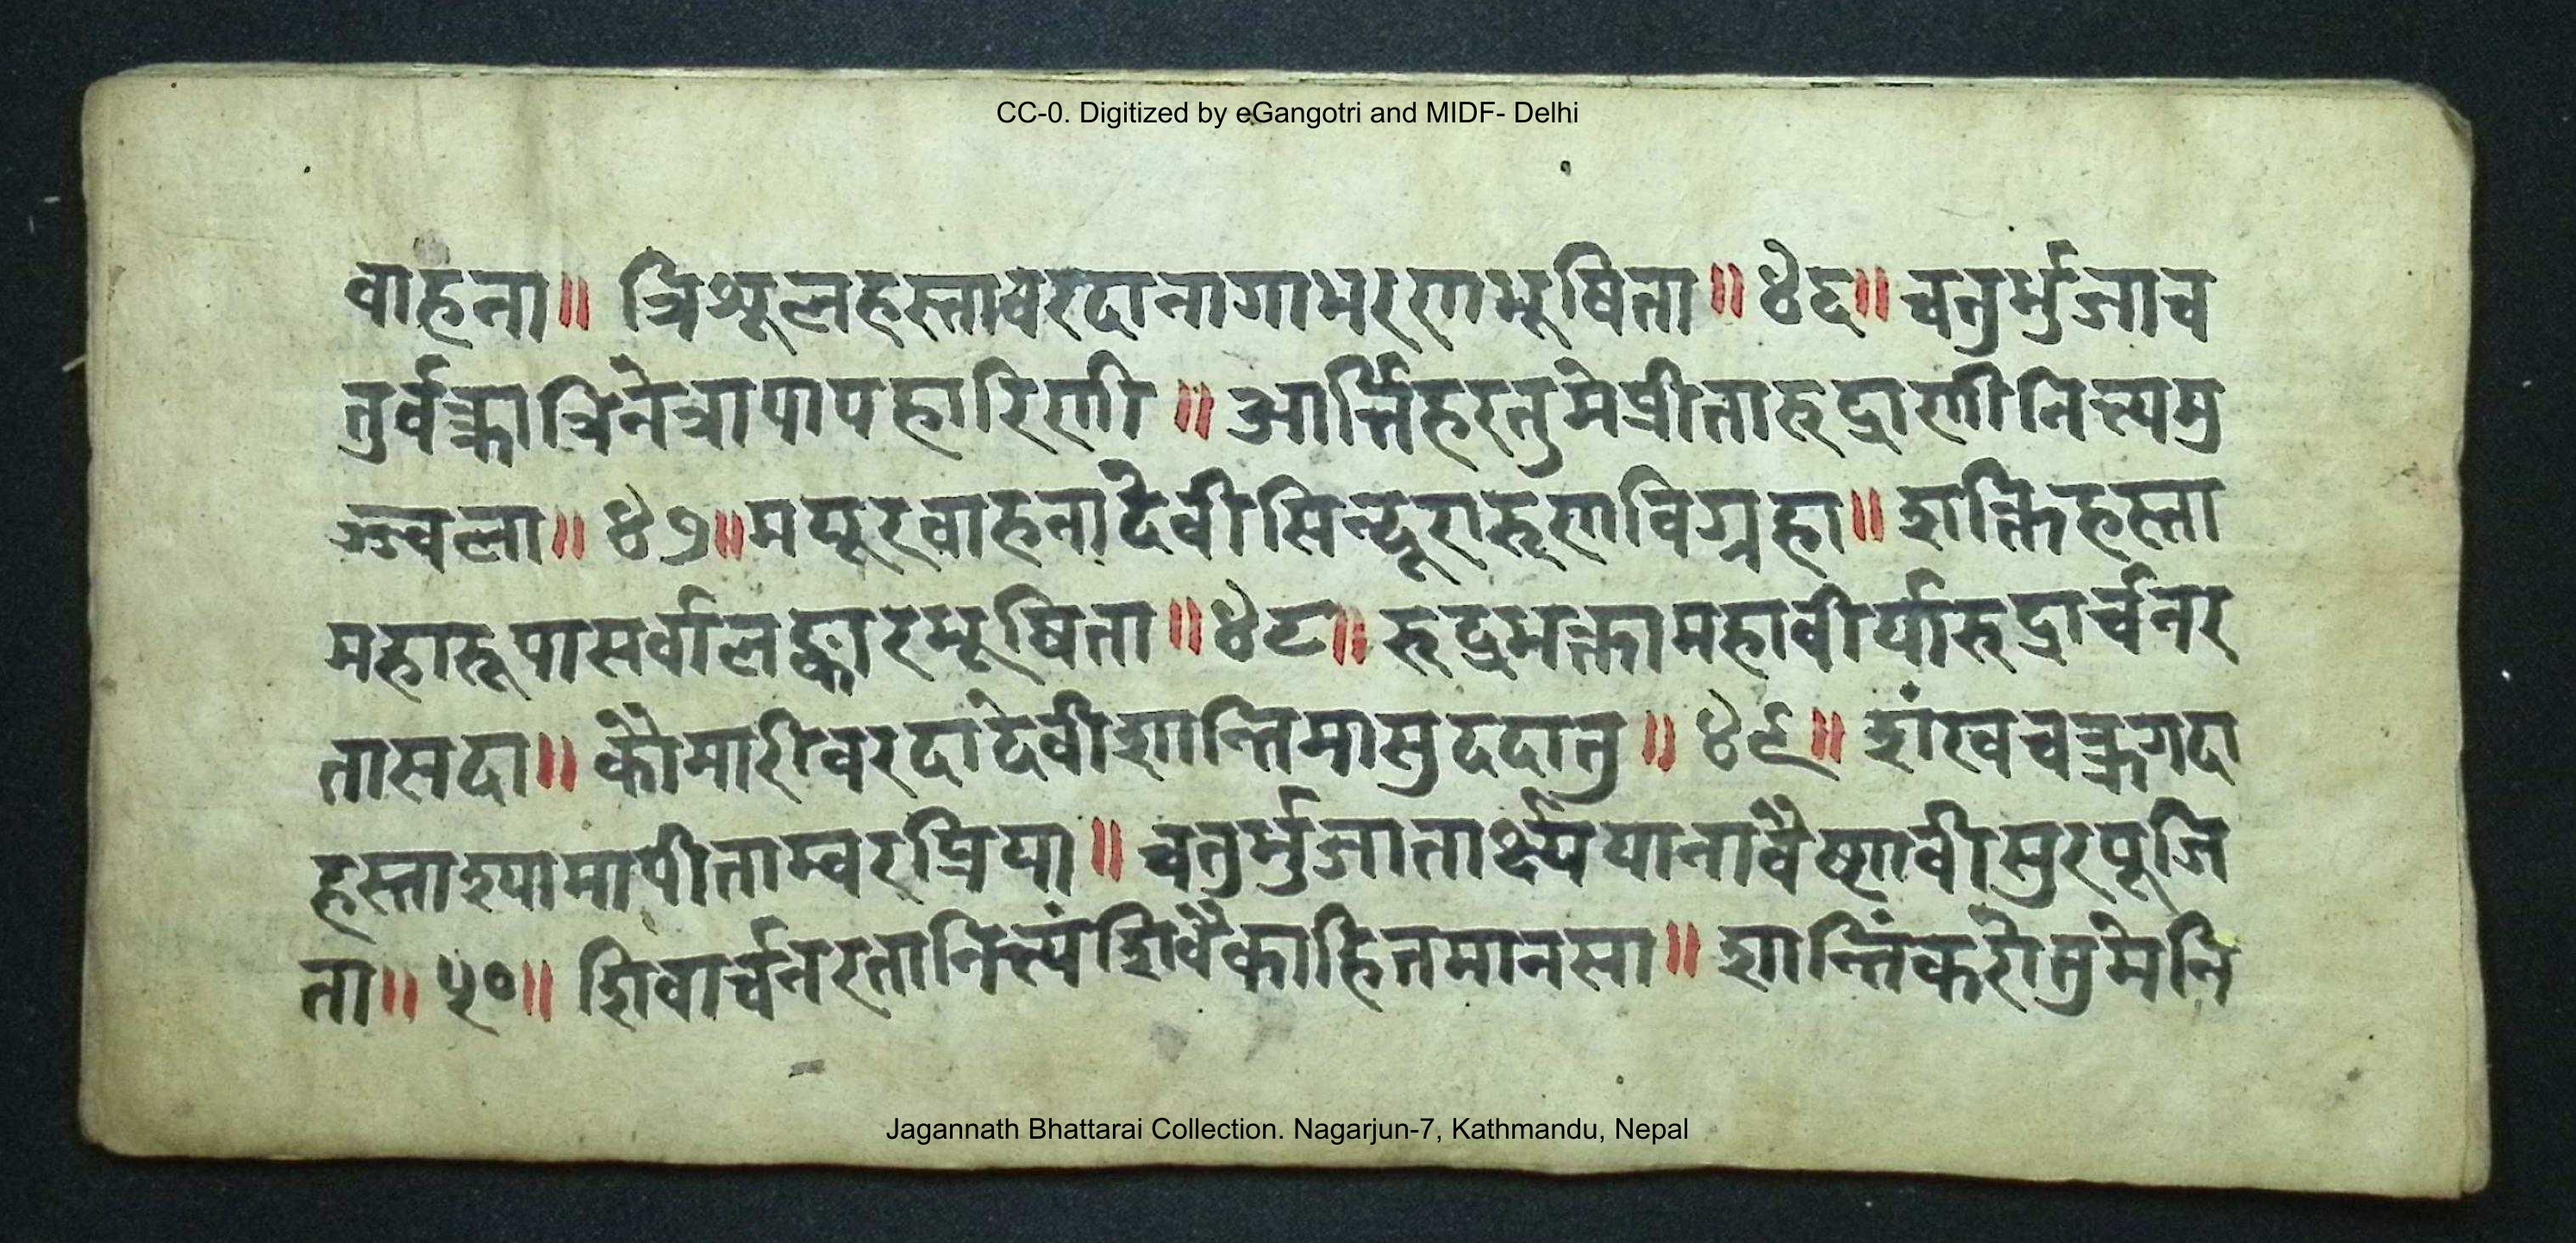 CC-0. Digitized by eGangotri and MIDF- Delhi
वाहना॥ त्रिशूलहस्तावरदानागाभरणभूषिता॥४६॥ चतुर्भुजाच
तुर्वक्त्रात्रिनेत्रापापहारिणी॥ आर्त्तिहरतुमेप्रीतारुद्राणीनित्यमु
ज्ज्वला॥४७॥मयूरवाहनादेवीसिन्दूरारुणविग्रहा॥ शक्तिहस्ता
महारूपासर्वालङ्कारभूषिता॥४८॥ रुद्रभक्तामहावीर्यारुद्रार्चनर
तासदा॥ कौमारीवरदादेवीशान्तिमासुददातु॥ ४९॥ शंखचक्रगदा
हस्ताश्यामापीताम्वरप्रिया॥ चतुर्भुजातार्क्ष्ययानावैष्णवीसुरपूजि
ता॥ ५०॥ शिवार्चनरतानित्यंशिवैकाहितमानसा॥ शान्तिंकरोतुमेनि
Jagannath Bhattarai Collection. Nagarjun-7, Kathmandu, Nepal